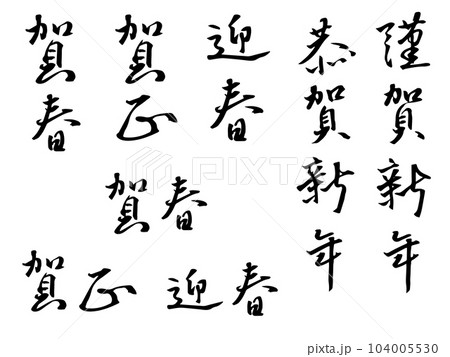 謹賀新年
恭賀新年
迎春
賀正
賀春
賀春
賀正
迎春
PIXTA
pixta.jp - 104005530